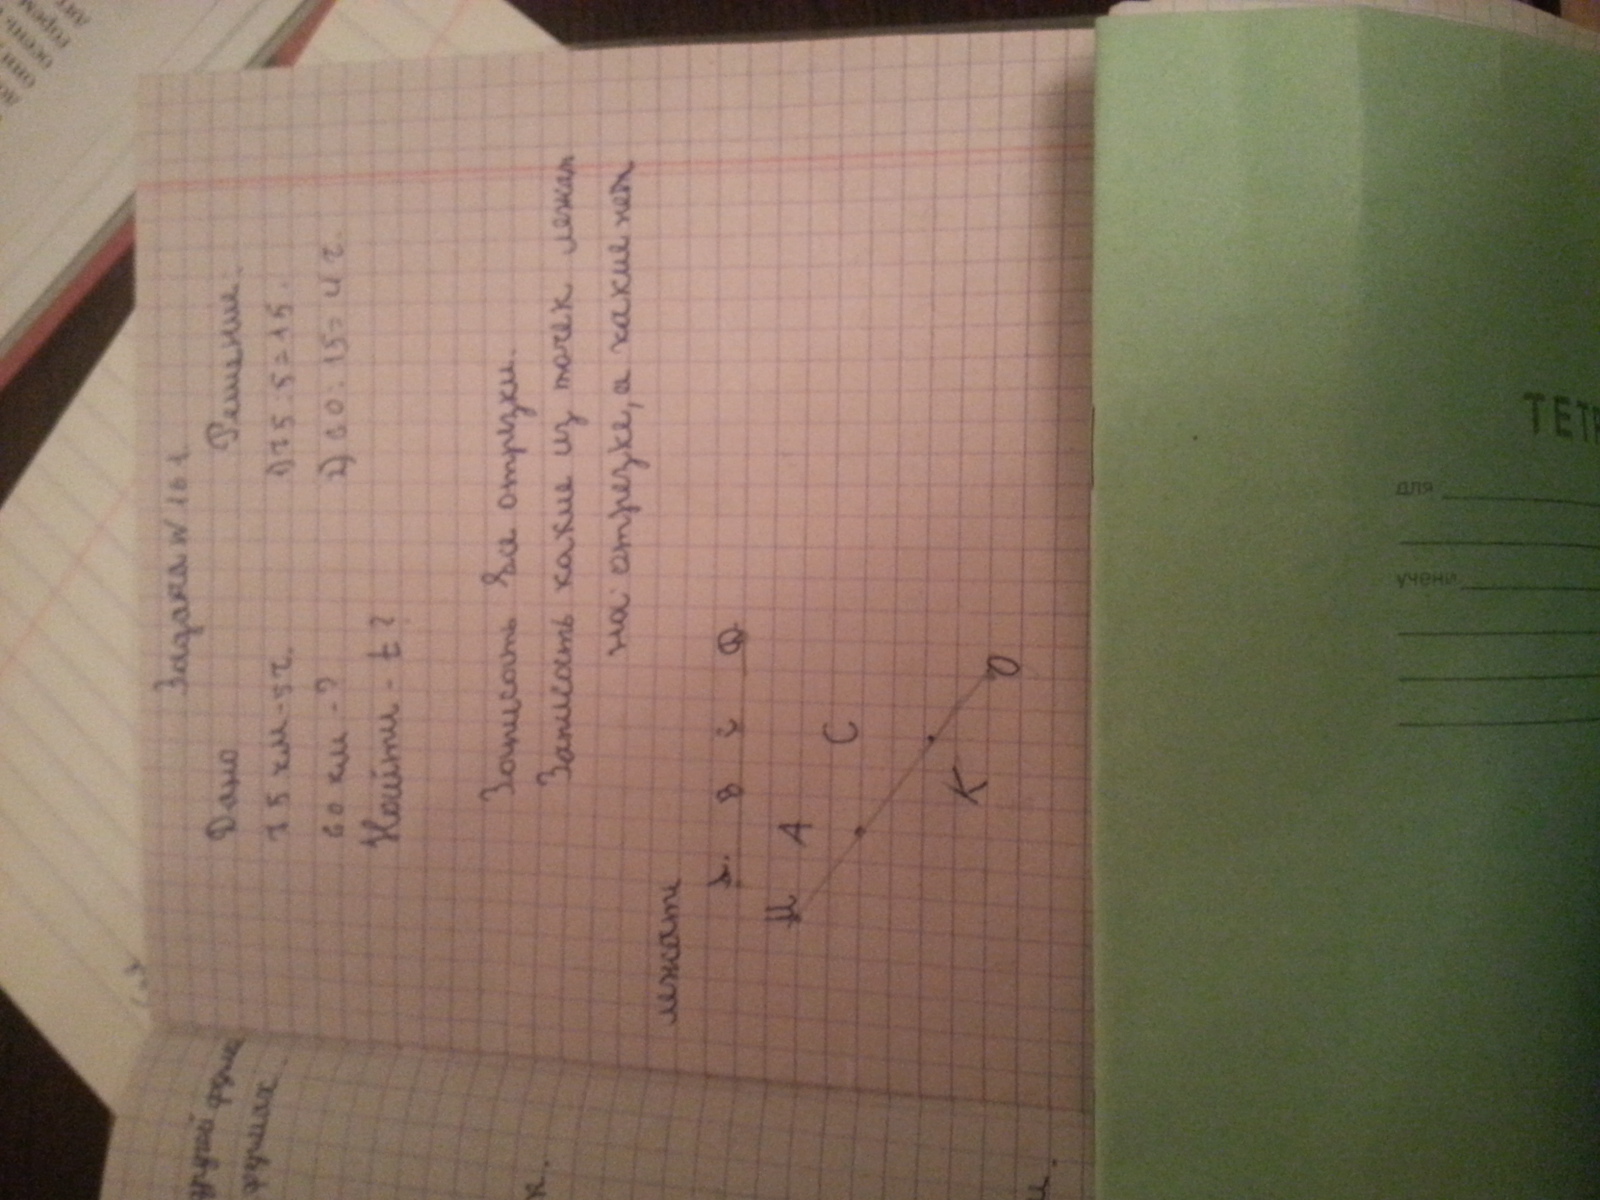 Задача № 161
Дано Решение.
75 км - 5 ч.
1) 75 : 5 = 15.
60 км - ?
2) 60 : 15 = 4 ч.
Найти - t ?
Записать все отрезки.
Записать какие из точек лежат
на отрезке, а какие нет
лежати
В С D
М А С
К О
другой
ТЕТР
для
учени